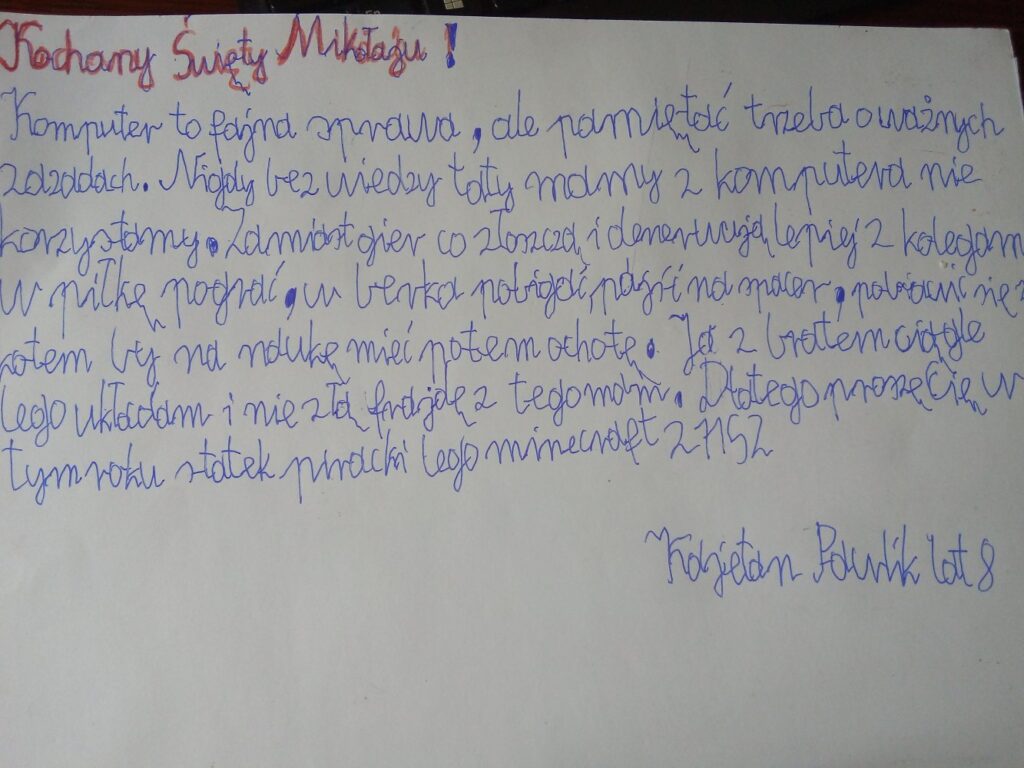 Kochany Święty Mikołaju!
Komputer to fajna sprawa, ale pamiętać trzeba o ważnych
zasadach. Nigdy bez wiedzy taty mamy z komputera nie
korzystamy. Zamiast gier co złoszczą i denerwują lepiej z kolegam
w piłkę pograć, w berka pobiegać, pójść na spacer, pobawić się z
kotem by na naukę mieć potem ochotę. Ja z bratem ciągle
lego układam i nie złą frajdę z tego mam. Dlatego proszę Cię w
tym roku statek piracki lego minecraft 27152
Kajetan Pawlik lat 8